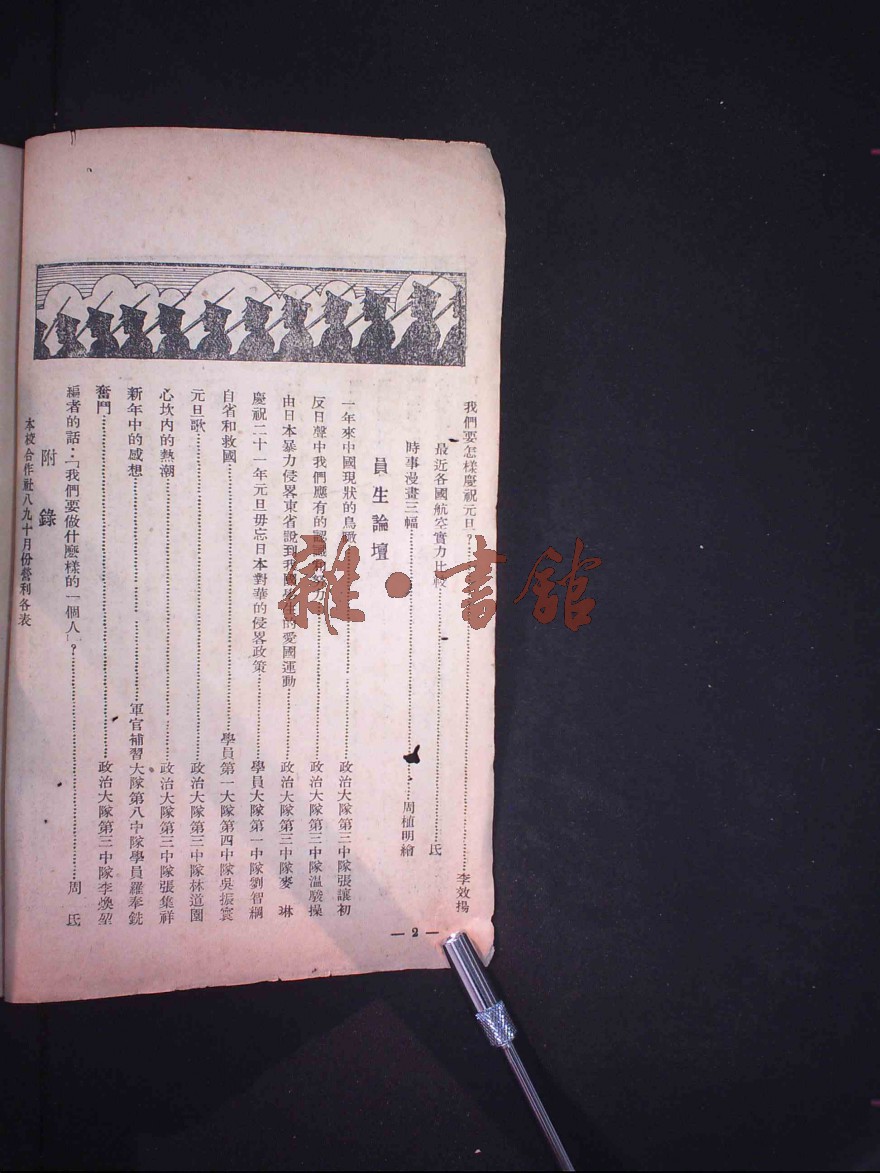 我們要怎樣慶祝元旦？……李效揚
最近各國航空實力比較……氏
時事漫畫三幅……周植明繪
員生論壇
一年來中國現狀的鳥瞰……政治大隊第三中隊張讓初
反日聲中我們應有的認識和努力……政治大隊第三中隊溫駿操
由日本暴力侵畧東省說到我國學生的愛國運動……政治大隊第三中隊麥　琳
慶祝二十一年元旦毋忘日本對華的侵畧政策……學員大隊第一中隊劉智綱
自省和救國……學員第一大隊第四中隊吳振寰
元旦歌……政治大隊第三中隊林道園
心坎內的熱潮……政治大隊第三中隊張集祥
新年中的感想……軍官補習大隊第八中隊學員羅奉銑
奮鬥……政治大隊第三中隊李煥堃
編者的話：「我們要做什麼樣的一個人」？……周　氏
附錄
本校合作社八九十月份營利各表
— 2 —
雜·書館